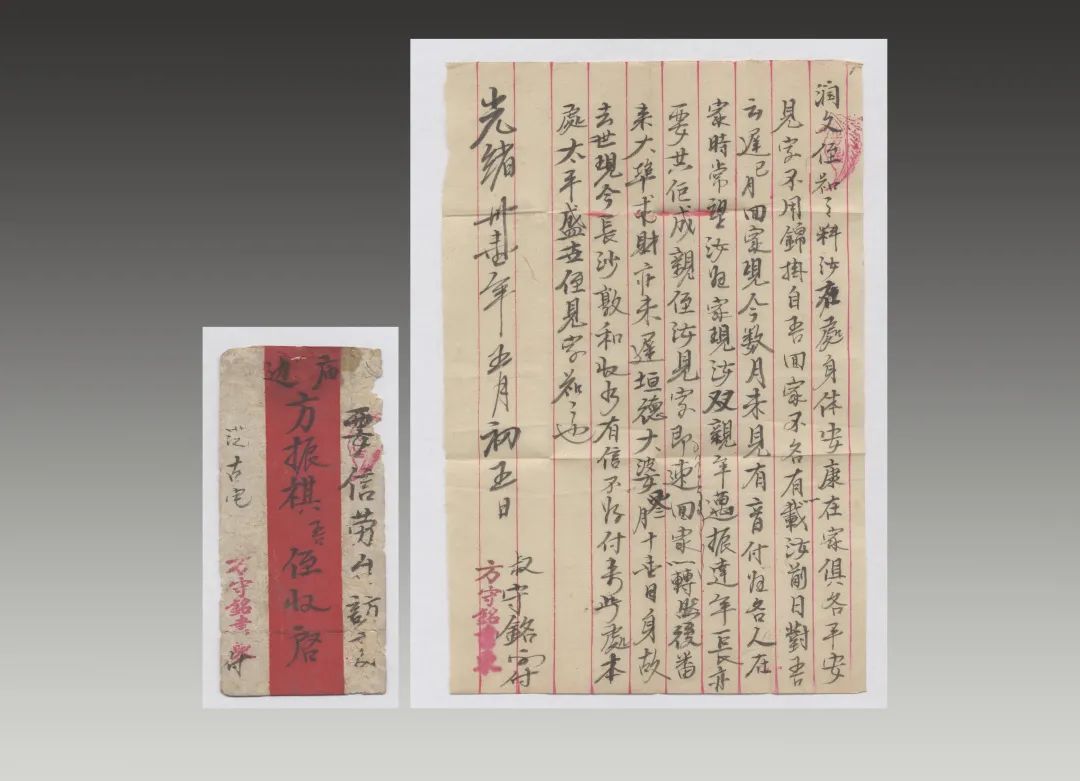 润文侄知之料汝在處身体安康在家俱各平安
見字不用錦掛自吾回家不各有載汝前日對吾
云遲已月回家現今数月未見有音付归各人在
家時常望汝归家現汝双親年邁振達年長亦
要共佢成親侄汝見字即速回家一轉然後番
来大埠求財亦未遲垣德大婆月十壹日身故
去世現今長沙敦和收水有信不好付来此處本
處太平盛世侄見字知之也
叔守銘字付
方守銘書柬
光緒卅壹年五月初五日
要信勞台訪交
庙边
方振棋吾侄收启
古屯
方守銘書柬
付